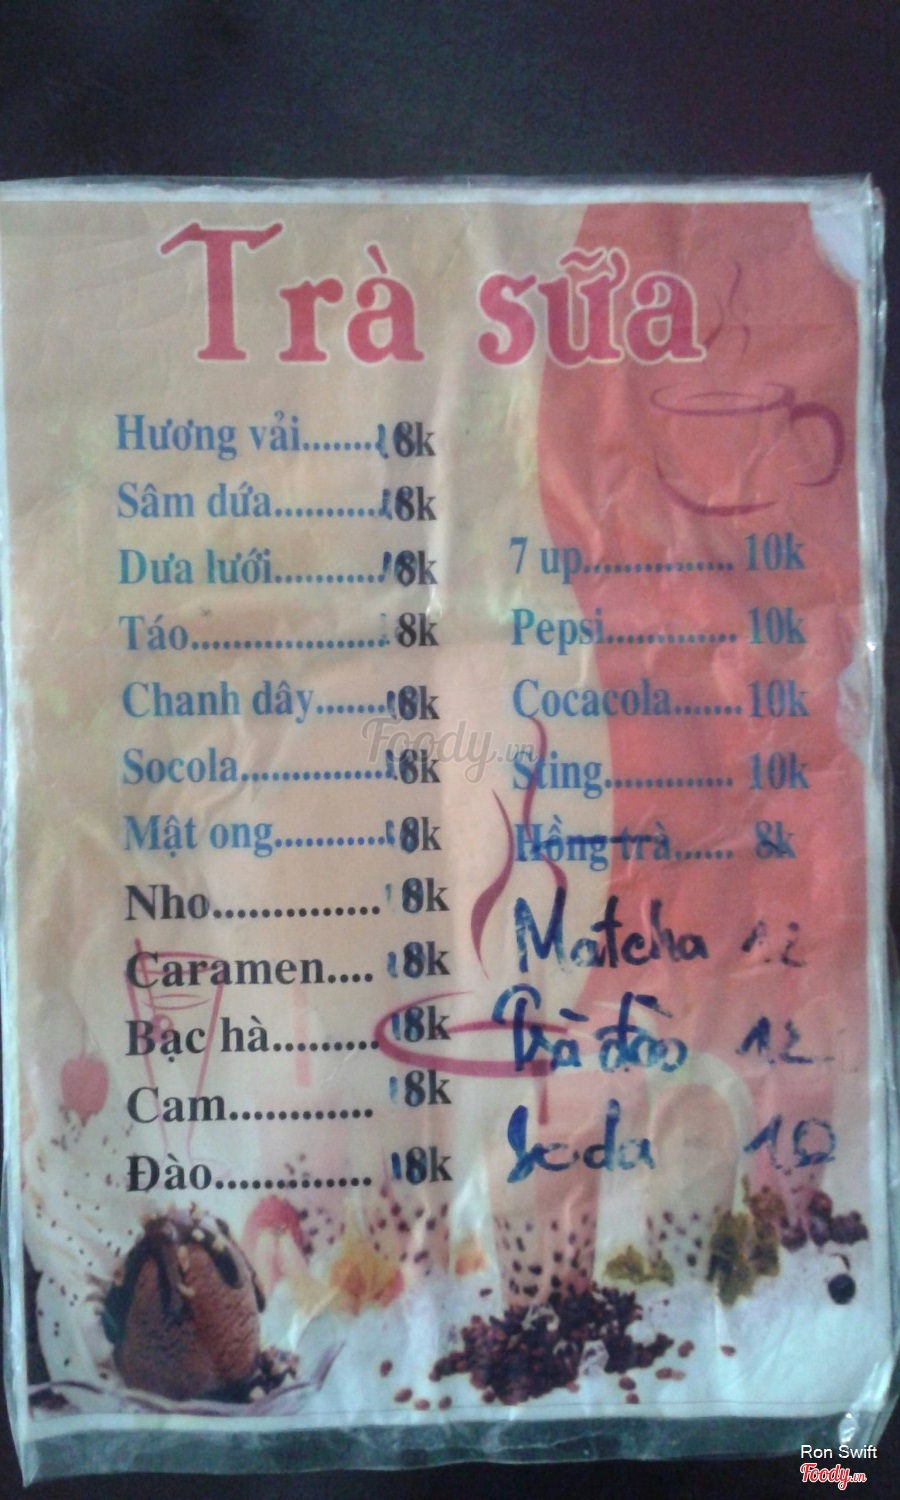 Trà sữa
Hương vải........18k
Sâm dứa...........18k
Dưa lưới...........18k
Táo....................8k
Chanh dây.......18k
Socola..............18k
Mật ong...........18k
Nho............... 18k
Caramen.... 18k
Bạc hà......... 18k
Cam............ 18k
Đào............. 18k
7 up............... 10k
Pepsi............. 10k
Cocacola....... 10k
Sting............ 10k
Hồng trà...... 8k
Matcha 12
Trà đào 12
Soda 10
Foody.vn
Ron Swift
Foody.vn